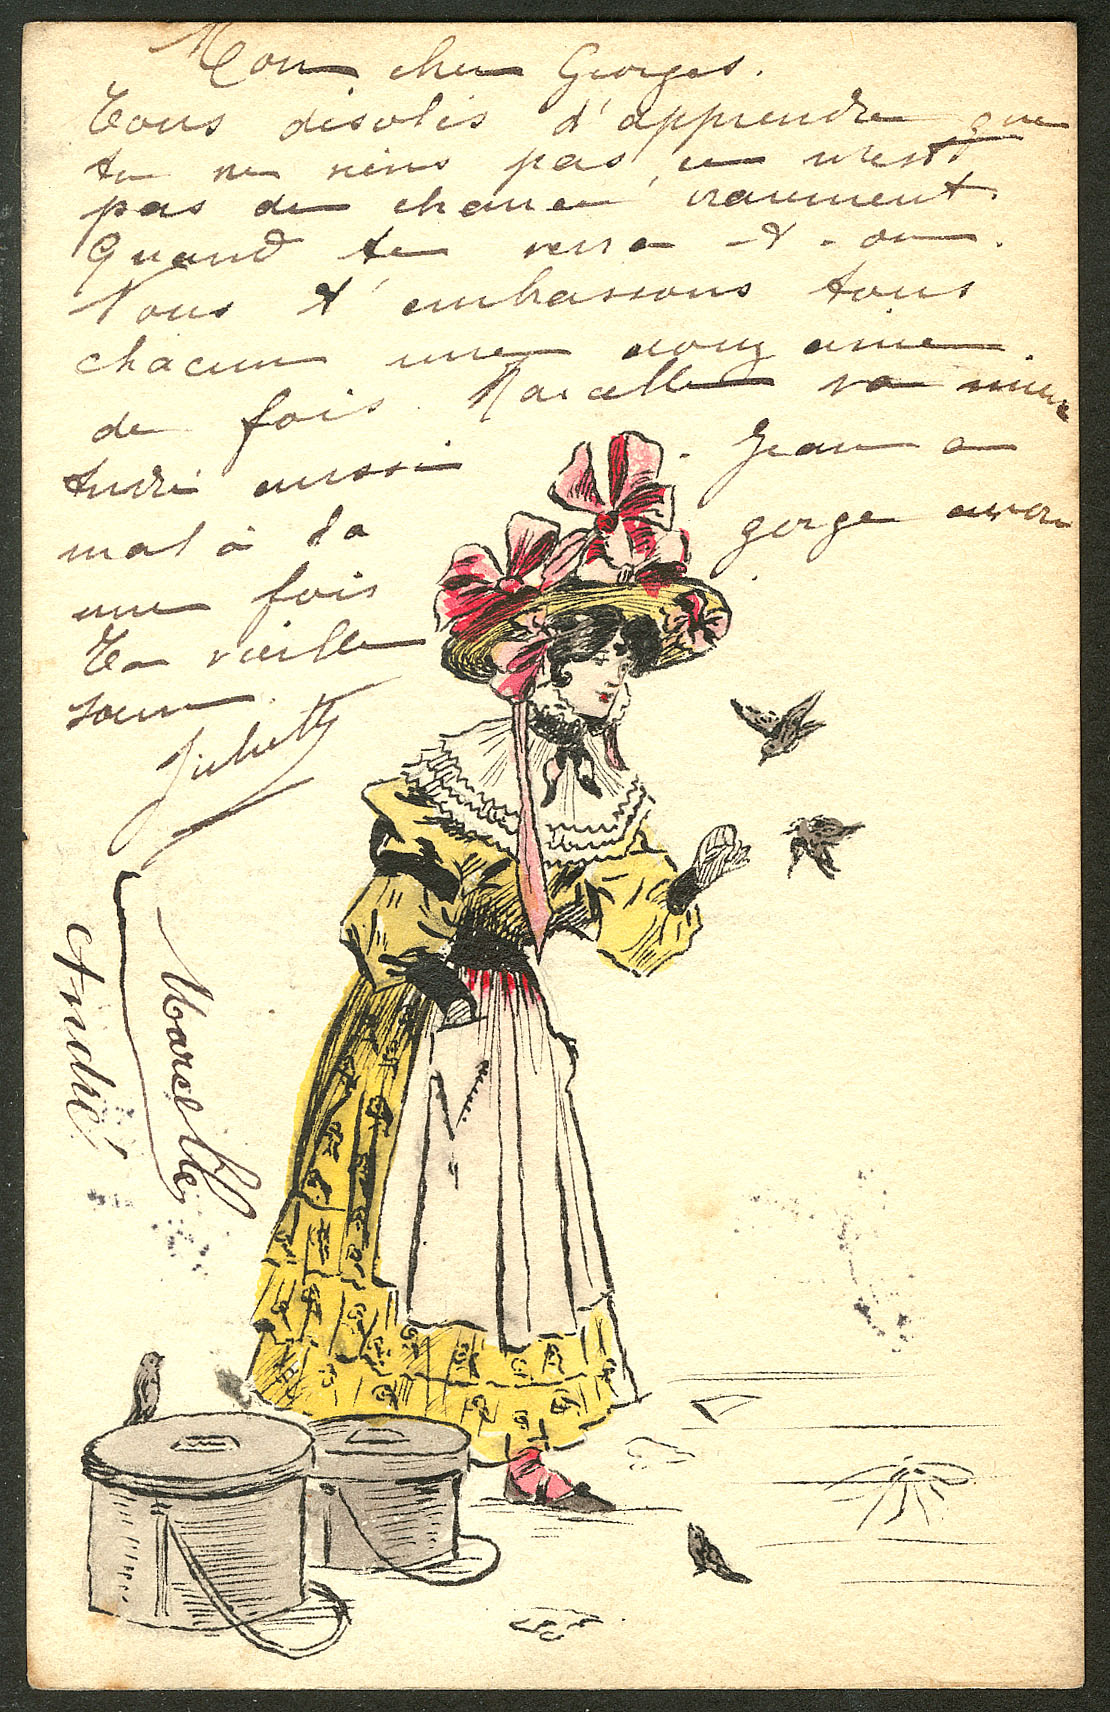 Mon cher Georges.
Tous désolés d'apprendre que
tu ne viens pas, ce n'est
pas de chance, vraiment.
Quand te verra-t-on.
Nous t'embrassons tous
chacun une douzaine
de fois. Marcelle va mieux
André aussi. Jean a
mal à la gorge encore
une fois
Ta vieille
sœur
Juliette
Marcelle
André